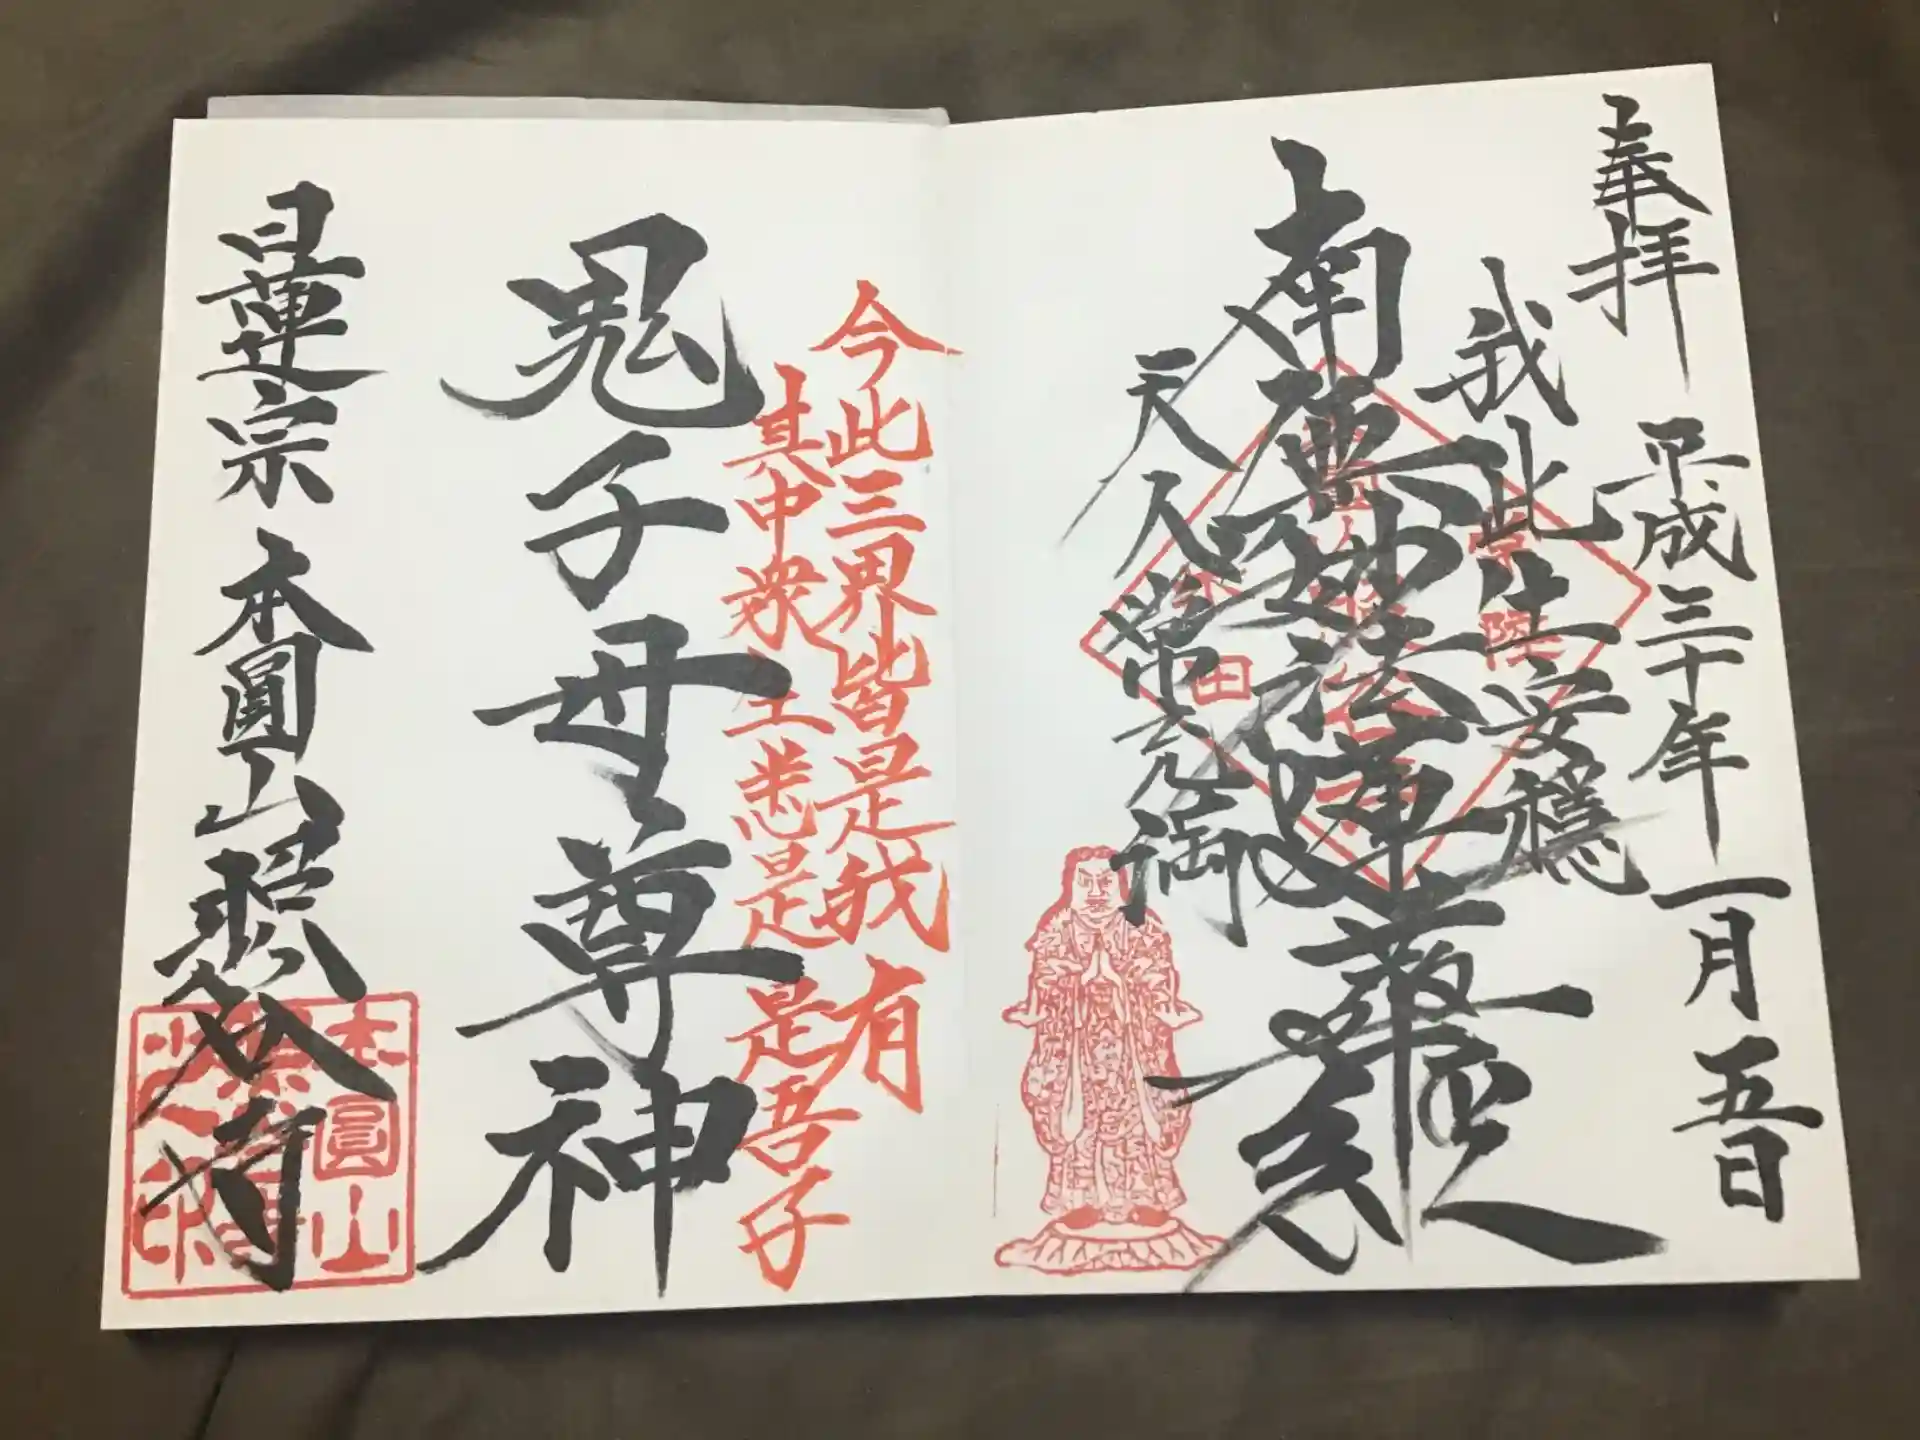 奉拝 平成三十年 一月五日
我此土安穏
南無妙法蓮華経
天人常充満
常陸
今此三界皆是我有
其中衆生悉是吾子
鬼子母尊神
日蓮宗 本圓山 寺
本圓山
之印